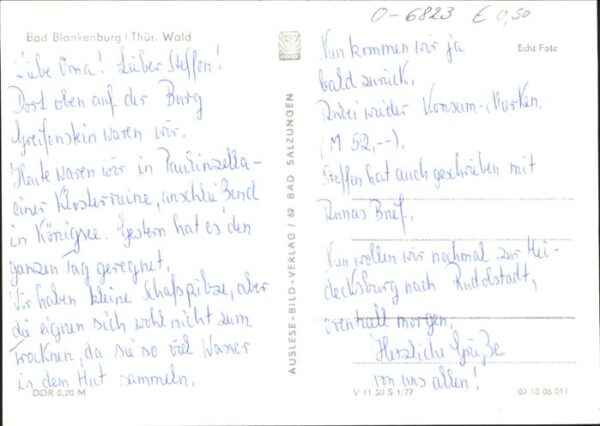 O-6823 € 0,50
Bad Blankenburg / Thür. Wald
Echt Foto
Liebe Oma! Lieber Steffen!
Dort oben auf der Burg
Greifenstein waren wir.
Heute waren wir in Paulinzella -
einer Klosterruine, anschließend
in Königsee. Gestern hat es den
ganzen Tag geregnet.
Wir haben kleine Schafspilze, aber
die eignen sich wohl nicht zum
Trocknen, da sie so viel Wasser
in dem Hut sammeln.
DDR 0,20 M
AUSLESE-BILD-VERLAG / 62 BAD SALZUNGEN
Nun kommen wir ja
bald zurück.
Anbei wieder Konsum-Marken.
(M 52,--).
Steffen hat auch geschrieben mit
Brief.
Nun wollen wir nochmal zur Hei-
decksburg nach Rudolstadt,
eventuell morgen.
Herzliche Grüße
von uns allen!
V 11 50 S 1/77
09 10 06 011